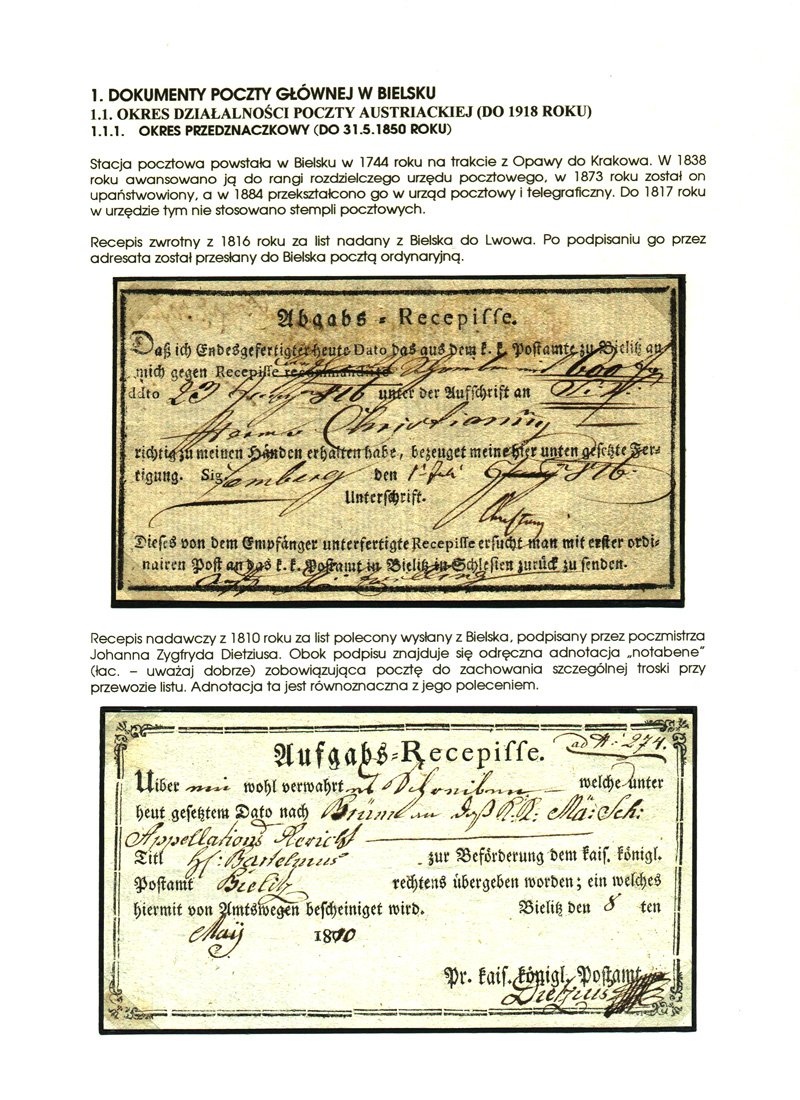 1. DOKUMENTY POCZTY GŁÓWNEJ W BIELSKU
1.1. OKRES DZIAŁALNOŚCI POCZTY AUSTRIACKIEJ (DO 1918 ROKU)
1.1.1. OKRES PRZEDZNACZKOWY (DO 31.5.1850 ROKU)
Stacja pocztowa powstała w Bielsku w 1744 roku na trakcie z Opawy do Krakowa. W 1838
roku awansowano ją do rangi rozdzielczego urzędu pocztowego, w 1873 roku został on
upaństwowiony, a w 1884 przekształcono go w urząd pocztowy i telegraficzny. Do 1817 roku
w urzędzie tym nie stosowano stempli pocztowych.
Recepis zwrotny z 1816 roku za list nadany z Bielska do Lwowa. Po podpisaniu go przez
adresata został przesłany do Bielska pocztą ordynaryjną.
Abgabs = Recepisse.
Daß ich Endesgefertigter heute Dato das aus dem k. k. Postamte zu Bielitz an
mich gegen Recepisse recommandirte 1600
ddto 23 816 unter der Aufschrift an
Christianiny
richtig zu meinen Händen erhalten habe, bezeuget meine hier unten gesetzte Fer-
tigung. Sig. Lemberg den 1t Juli 816.
Unterschrift.
Dieses von dem Empfänger unterfertigte Recepisse ersucht man mit erster ordi-
nairen Post an das k. k. Postamt in Bielitz in Schlesien zurück zu senden.
Recepis nadawczy z 1810 roku za list polecony wysłany z Bielska, podpisany przez poczmistrza
Johanna Zygfryda Dietziusa. Obok podpisu znajduje się odręczna adnotacja „notabene"
(łac. – uważaj dobrze) zobowiązująca pocztę do zachowania szczególnej troski przy
przewozie listu. Adnotacja ta jest równoznaczna z jego poleceniem.
Aufgabs=Recepisse. ad No: 274.
Uiber ein wohl verwahrtes Schreiben welche unter
heut gesetztem Dato nach Brünn an daß K: K: Mä: Sch:
Appellations Gericht
Titl Bartelmus zur Beförderung dem kais. königl.
Postamt Bielitz rechtens übergeben worden; ein welches
hiermit von Amtswegen bescheiniget wird. Bielitz den 8 ten
Maÿ 1810
Pr. kais. königl. Postamt
Dietzius